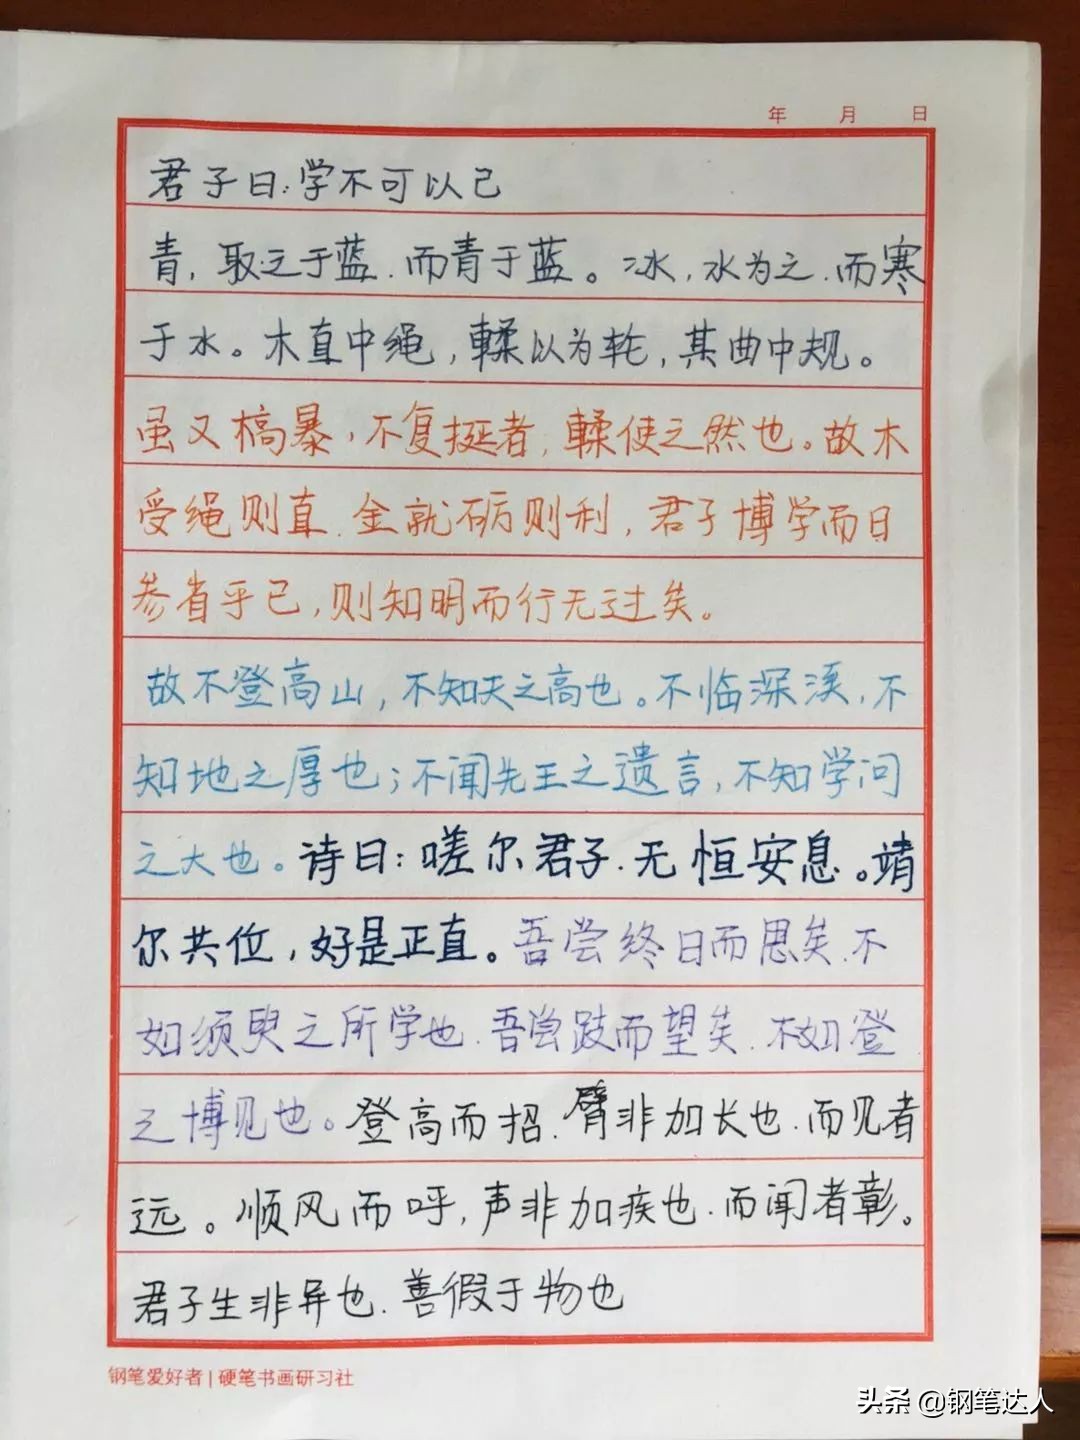 年 月 日
君子曰:学不可以己
青,取之于蓝.而青于蓝。冰,水为之.而寒
于水。木直中绳,輮以为轮,其曲中规。
虽又槁暴,不复挺者,輮使之然也。故木
受绳则直.金就砺则利,君子博学而日
参省乎己,则知明而行无过矣。
故不登高山,不知天之高也。不临深溪,不
知地之厚也;不闻先王之遗言,不知学问
之大也。诗曰:嗟尔君子.无恒安息。靖
尔共位,好是正直。吾尝终日而思矣.不
如须臾之所学也.吾尝跂而望矣.不如登
之博见也。登高而招.臂非加长也.而见者
远。顺风而呼,声非加疾也.而闻者彰。
君子生非异也.善假于物也
钢笔爱好者|硬笔书画研习社
头条 @钢笔达人